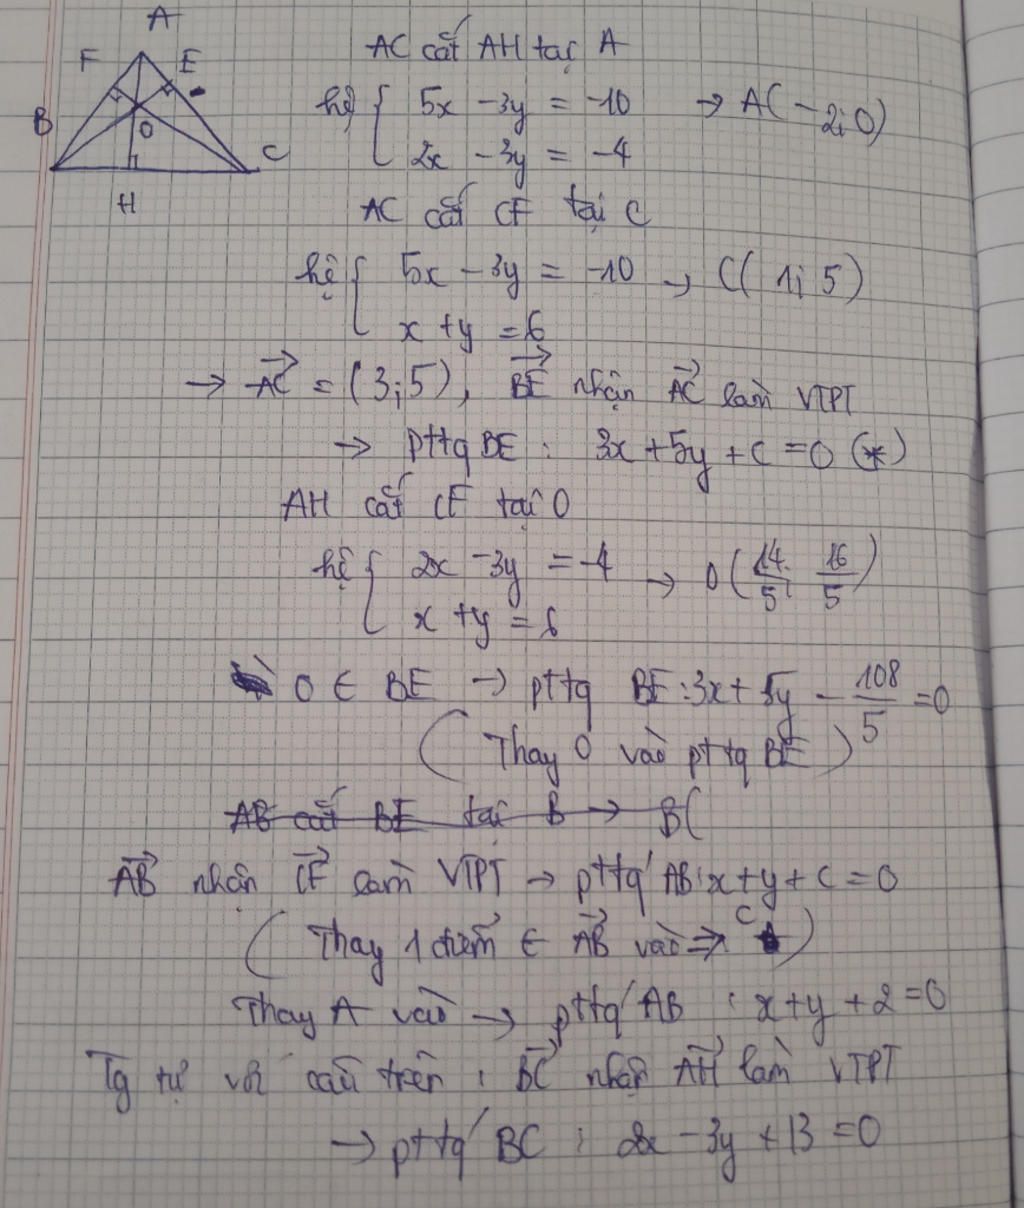 A
F
E
B
O
C
H
AC cắt AH tại A
hệ { 5x - 3y = -10 → A(-2; 0)
2x - 3y = -4
AC cắt CF tại C
hệ { 5x - 3y = -10 → C( 1; 5)
x + y = 6
→ \vec{AC} = (3; 5), \vec{BE} nhận \vec{AC} làm VTPT
→ pttq BE : 3x + 5y + c = 0 (*)
AH cắt CF tại O
hệ { 2x - 3y = -4 → O(14/5; 16/5)
x + y = 6
O ∈ BE → pttq BE : 3x + 5y - 108/5 = 0
( Thay O vào pttq BE )
AB cắt BE tại B → B(
\vec{AB} nhận \vec{CF} làm VTPT → pttq AB : x + y + c = 0
( Thay 1 điểm ∈ \vec{AB} vào ⇒ c )
Thay A vào → pttq AB : x + y + 2 = 0
Tg tự với câu trên : \vec{BC} nhận \vec{AH} làm VTPT
→ pttq BC : 2x - 3y + 13 = 0